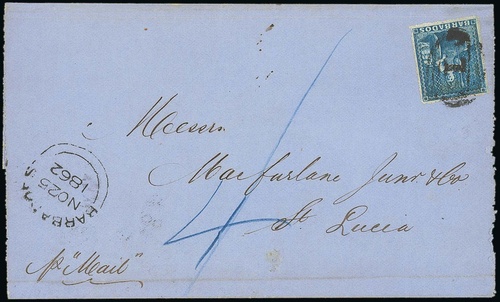 BARBADOS
Messrs
Macfarlane Junr. & Co
St. Lucia
4
BARBADOS
NO 25
1862
pr "Mail"